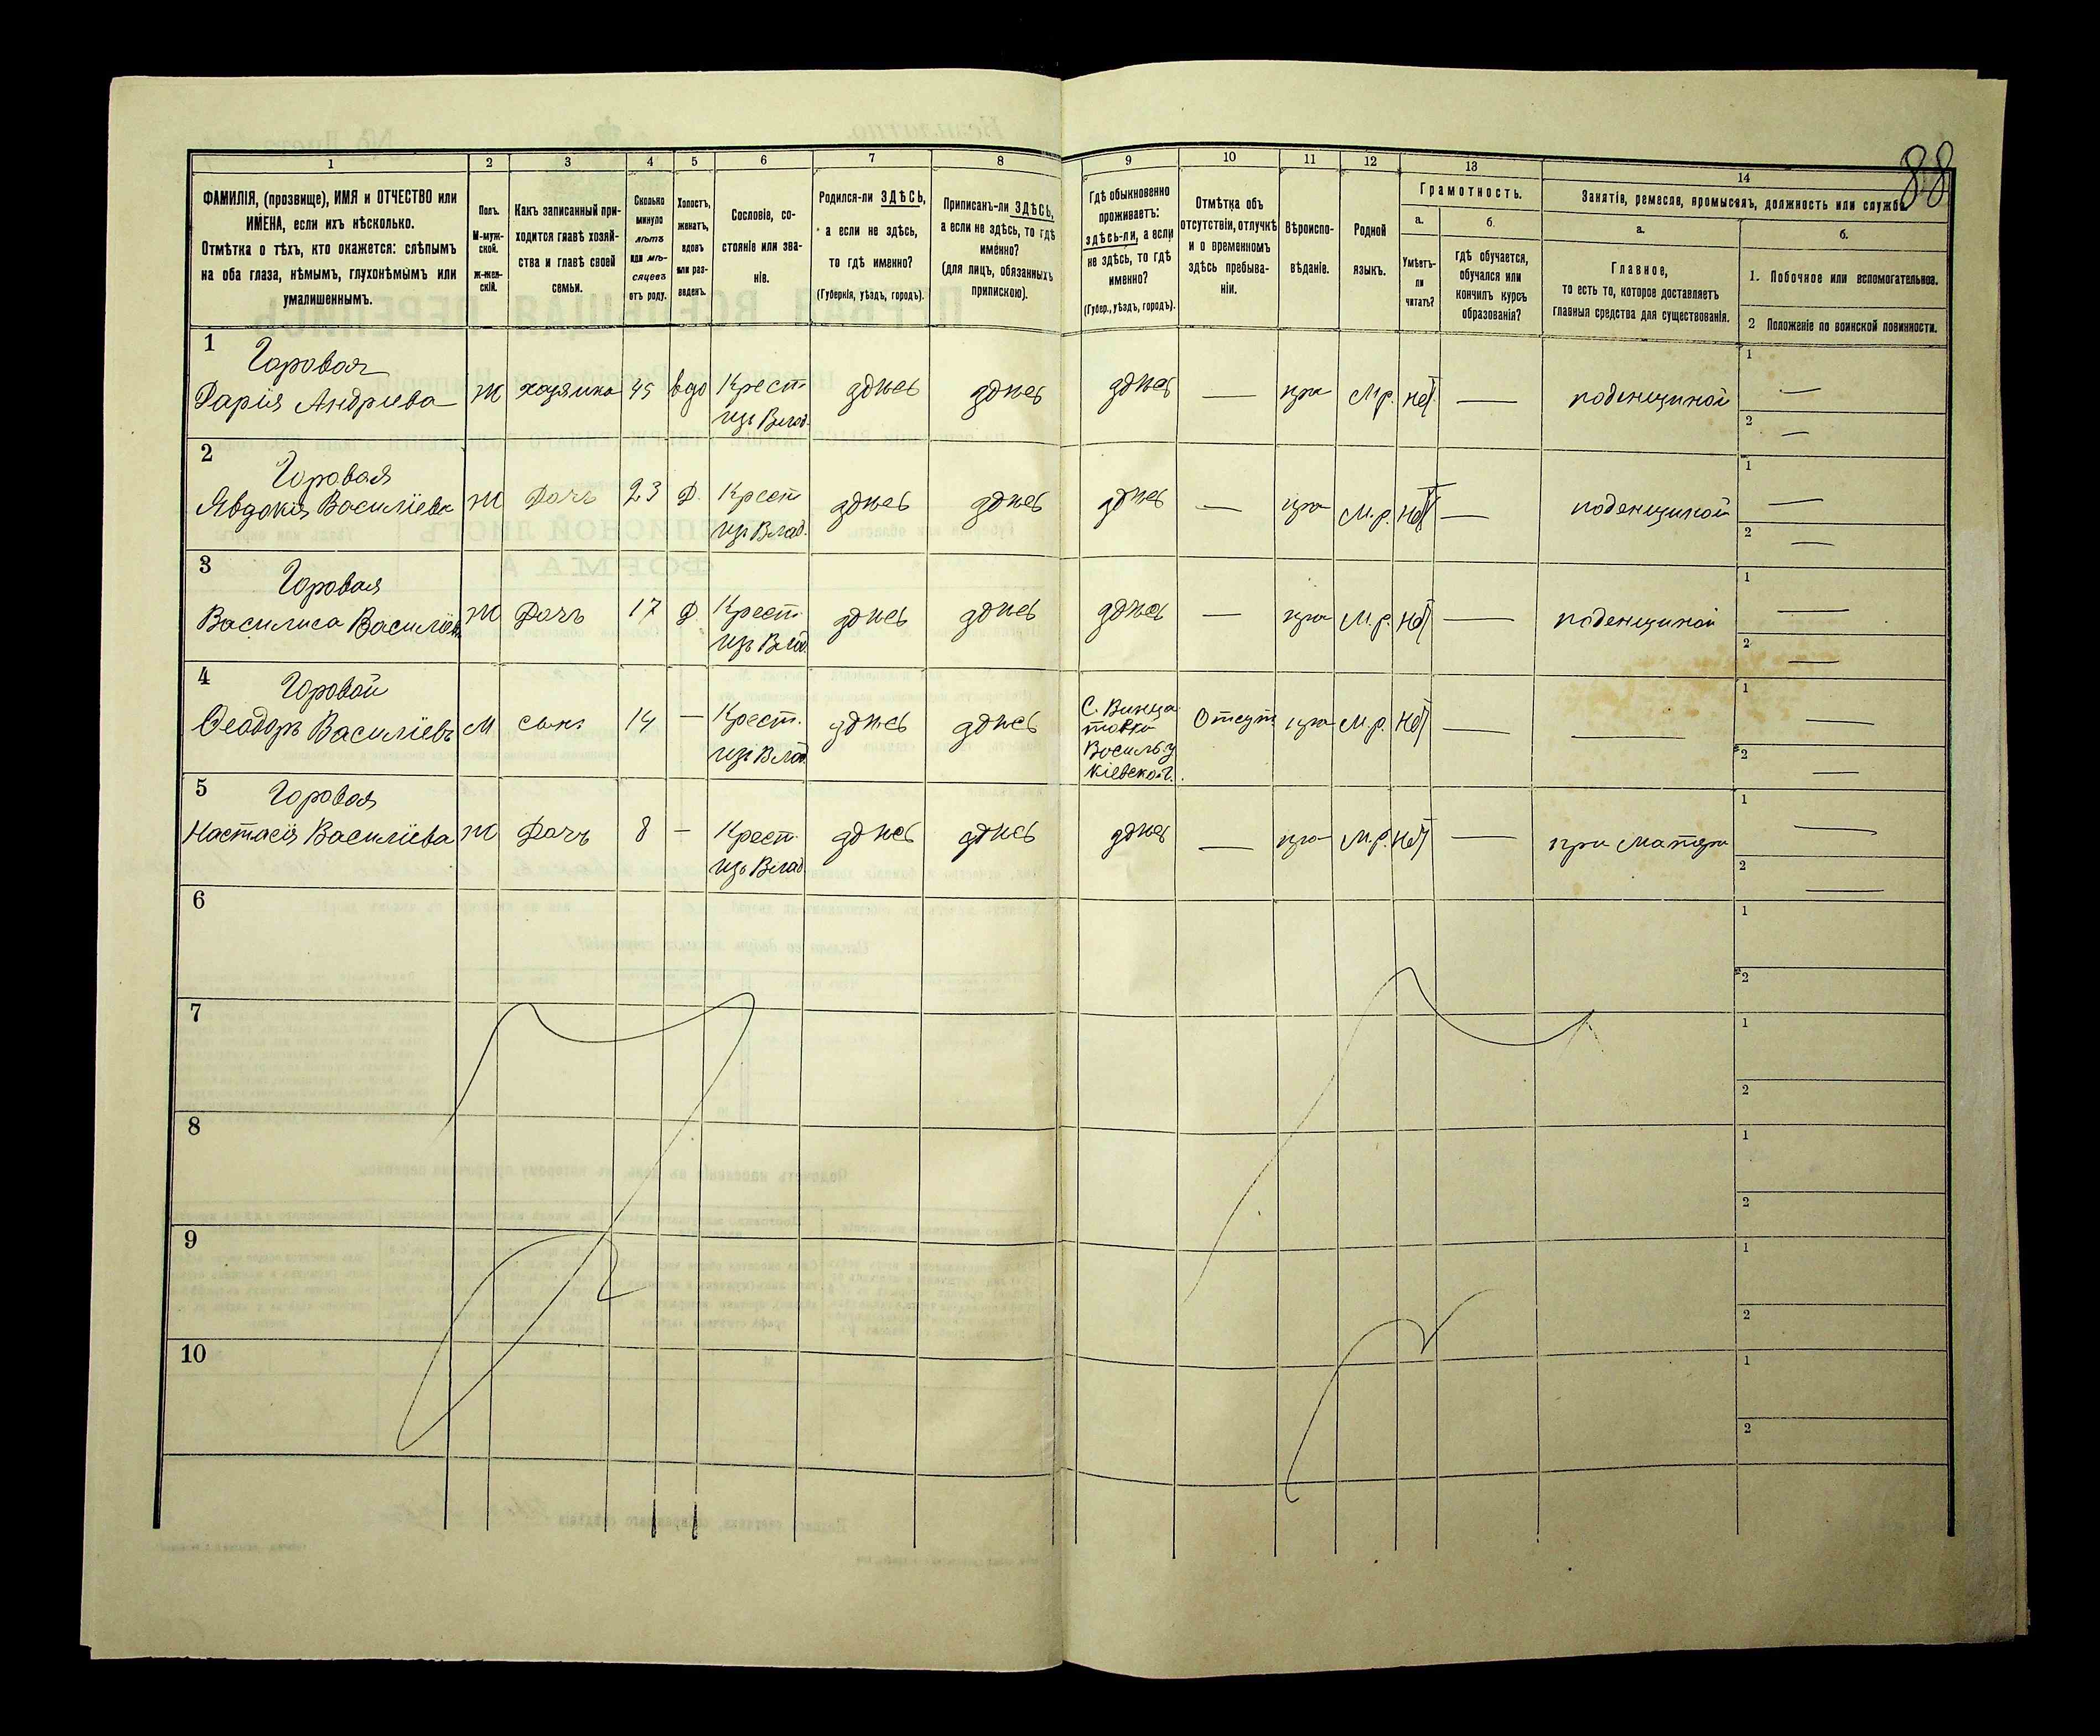 88
1 2 3 4 5 6 7 8 9 10 11 12 13 14
ФАМИЛІЯ, (прозвище), ИМЯ и ОТЧЕСТВО или
ИМЕНА, если ихъ нѣсколько.
Отмѣтка о тѣхъ, кто окажется: слѣпымъ
на оба глаза, нѣмымъ, глухонѣмымъ или
умалишеннымъ.
Полъ.
М-муж-
ской.
Ж-жен-
скій.
Какъ записанный при-
ходится главѣ хозяй-
ства и главѣ своей
семьи.
Сколько
минуло
лѣтъ
или мѣ-
сяцевъ
отъ роду.
Холостъ,
женатъ,
вдовъ
или раз-
веденъ.
Сословіе, со-
стояніе или зва-
ніе.
Родился-ли ЗДѢСЬ,
а если не здѣсь,
то гдѣ именно?
(Губернія, уѣздъ, городъ).
Приписанъ-ли ЗДѢСЬ,
а если не здѣсь, то гдѣ
именно?
(для лицъ, обязанныхъ
припискою).
Гдѣ обыкновенно
проживаетъ:
здѣсь-ли, а если
не здѣсь, то гдѣ
именно?
(Губер., уѣздъ, городъ).
Отмѣтка объ
отсутствіи, отлучкѣ
и о временномъ
здѣсь пребыва-
ніи.
Вѣроиспо-
вѣданіе.
Родной
языкъ.
Грамотность.
а.
Умѣетъ-
ли
читать?
б.
гдѣ обучается,
обучался или
кончилъ курсъ
образованія?
Занятіе, ремесло, промыселъ, должность или служба.
а.
Главное,
то есть то, которое доставляетъ
главныя средства для существованія.
б.
1. Побочное или вспомогательное.
2 Положеніе по воинской повинности.
1 Горовая
Дарія Андріева Ж хозяика 45 вдо Крест здѣсь здѣсь здѣсь — пра М.р. нѣт — поденщикой 1 —
изъ Влад. 2 —
2 Горовая
Явдокія Василіева Ж Дочь 23 Д. Крест здѣсь здѣсь здѣсь — пра М.р. нѣт — поденщикой 1 —
изъ Влад. 2 —
3 Горовая
Василиса Василіев Ж Дочь 17 Д. Крест. здѣсь здѣсь здѣсь — пра М.р. нѣт — поденщикой 1 —
изъ Влад. 2 —
4 Горовой
Ѳеодоръ Василіевъ М сынъ 14 — Крест. здѣсь здѣсь С. Винца Отсут. пра М.р. нѣт — — 1 —
изъ Влад. товки
Василь.у
Кіевской г. 2 —
5 Горовая
Настасія Василіева Ж Дочь 8 — Крест. здѣсь здѣсь здѣсь — пра М.р. нѣт — при матери 1 —
изъ Влад. 2 —
6 1
2
7 1
2
8 1
2
9 1
2
10 1
2